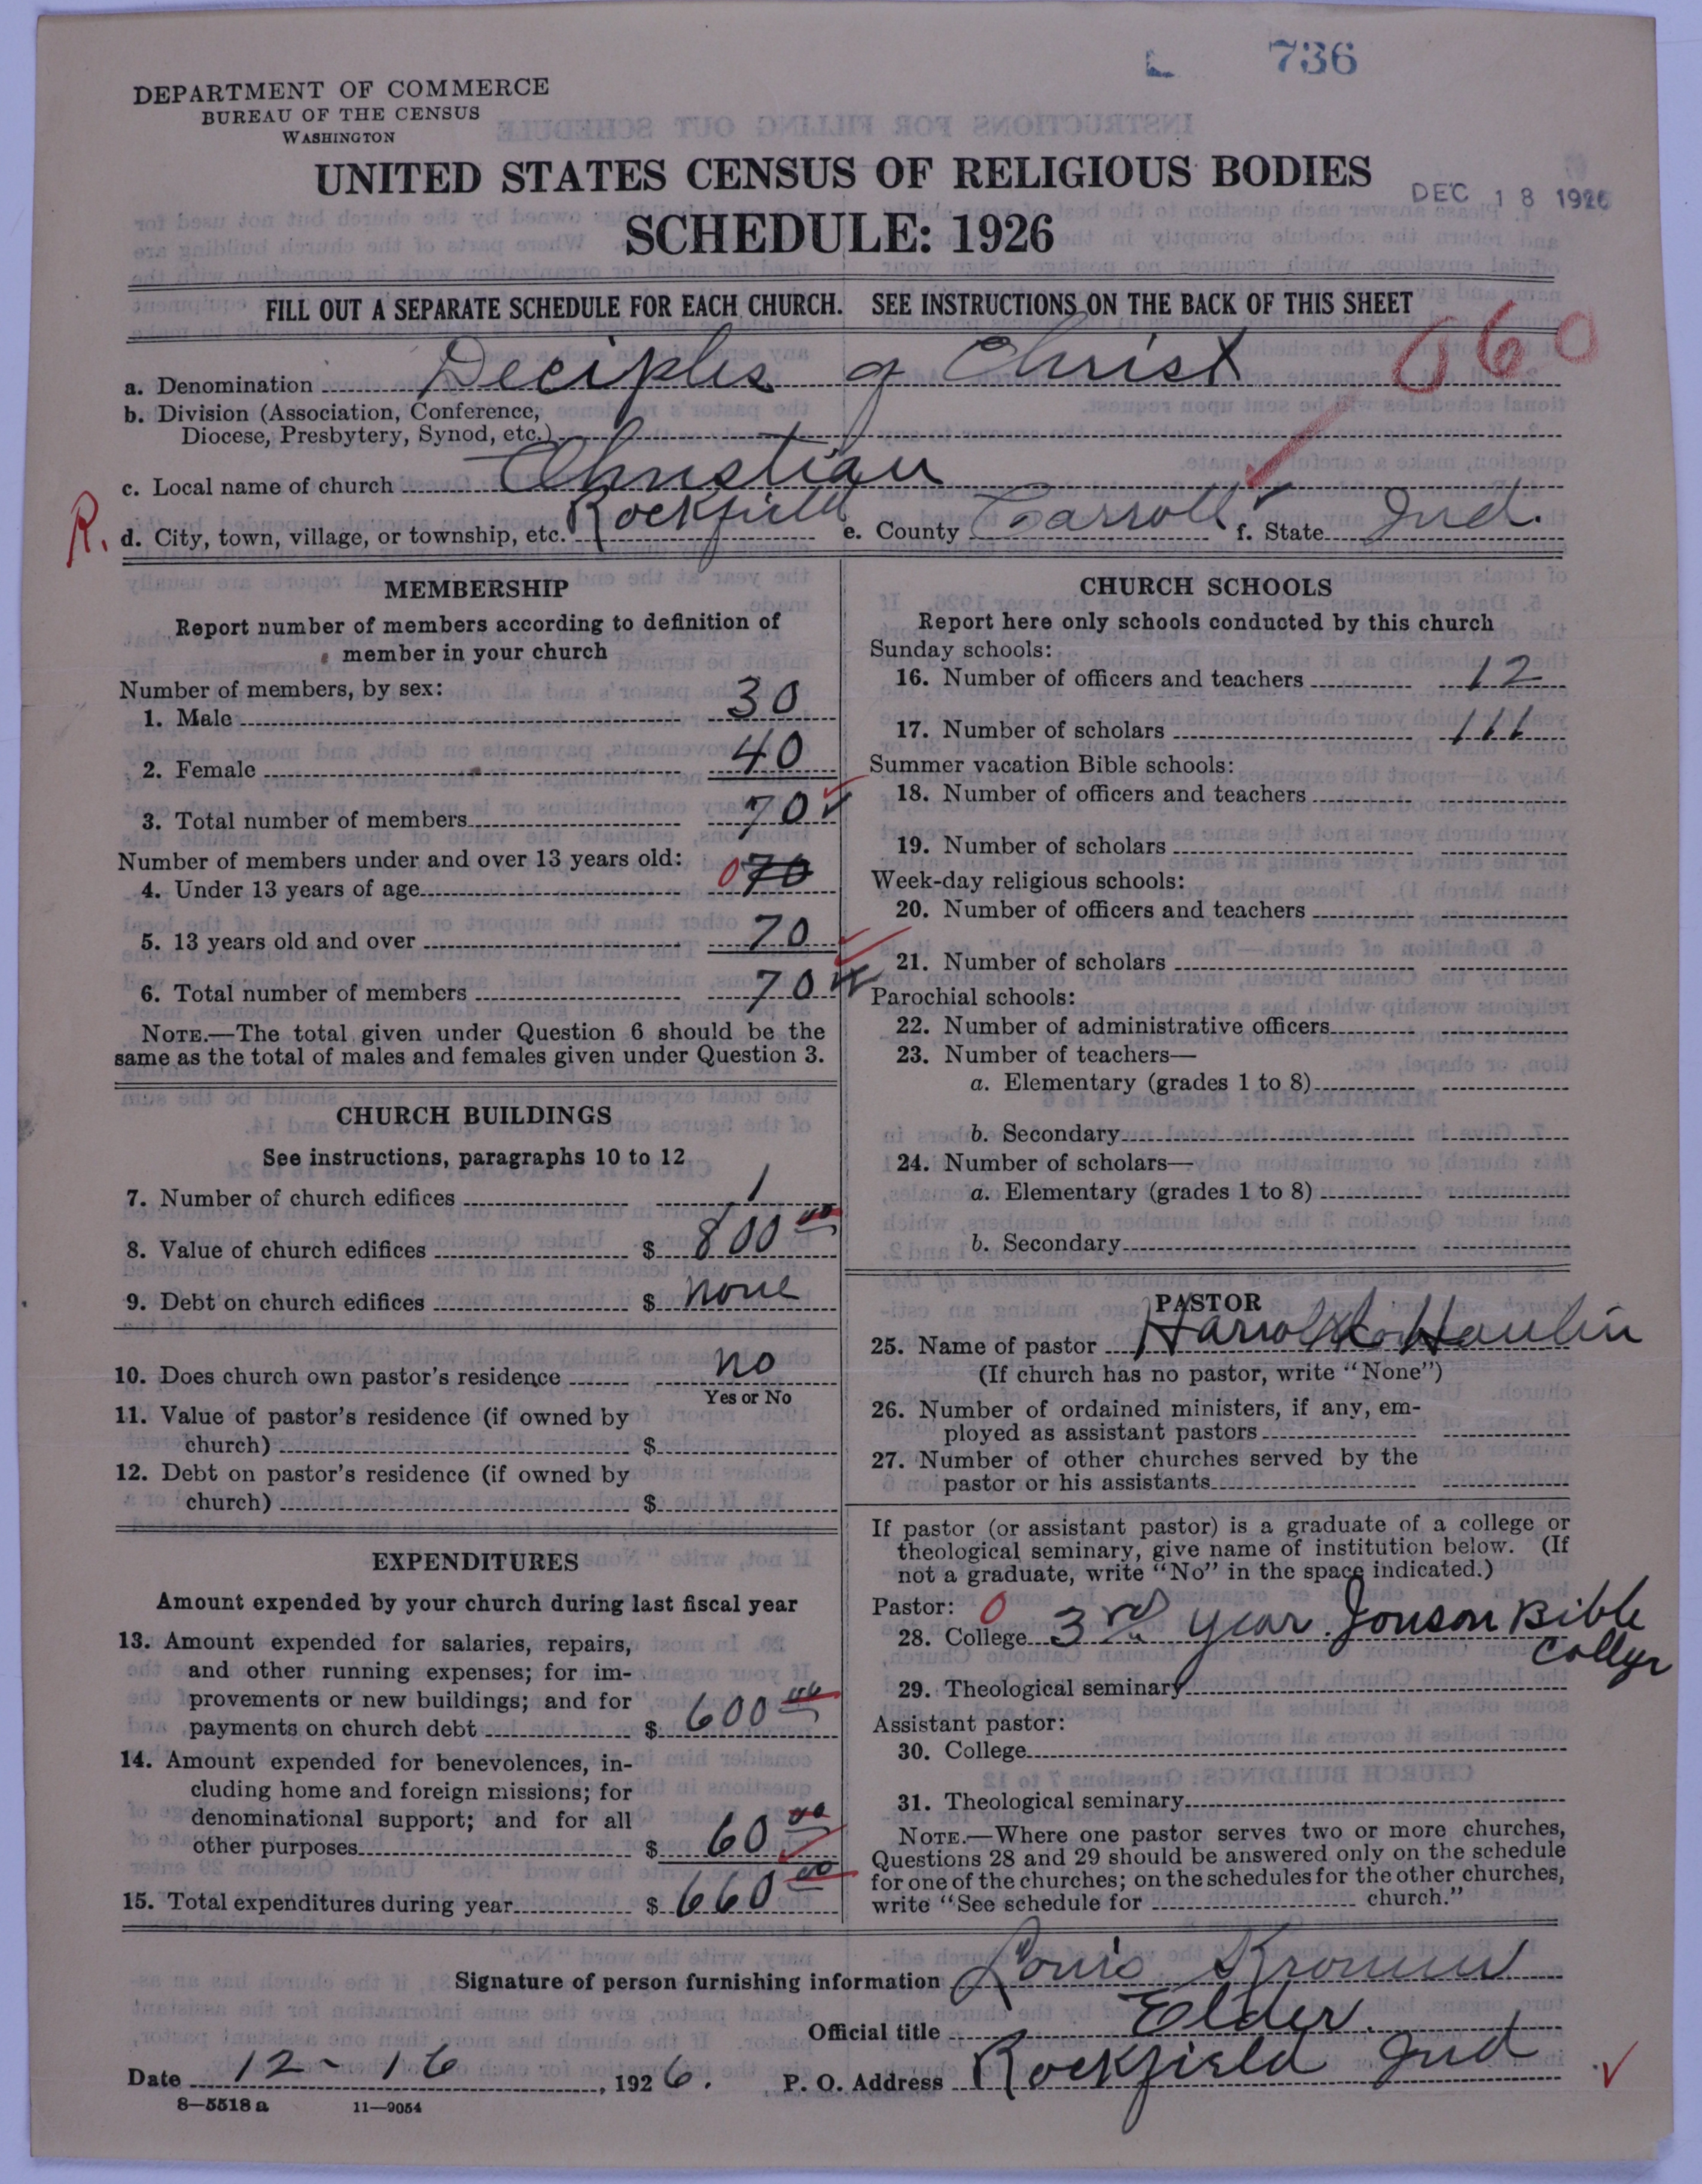 736
DEPARTMENT OF COMMERCE
BUREAU OF THE CENSUS
WASHINGTON
UNITED STATES CENSUS OF RELIGIOUS BODIES
DEC 18 1926
SCHEDULE: 1926
FILL OUT A SEPARATE SCHEDULE FOR EACH CHURCH. SEE INSTRUCTIONS ON THE BACK OF THIS SHEET
060
a. Denomination Deciples of Christ
b. Division (Association, Conference,
Diocese, Presbytery, Synod, etc.)
c. Local name of church Christian
R. d. City, town, village, or township, etc. Rockfield e. County Carroll f. State Ind.
MEMBERSHIP
Report number of members according to definition of
member in your church
Number of members, by sex:
1. Male 30
2. Female 40
3. Total number of members 70
Number of members under and over 13 years old:
4. Under 13 years of age 0 70
5. 13 years old and over 70
6. Total number of members 70
NOTE.—The total given under Question 6 should be the
same as the total of males and females given under Question 3.
CHURCH BUILDINGS
See instructions, paragraphs 10 to 12
7. Number of church edifices 1
8. Value of church edifices $ 800 00
9. Debt on church edifices $ none
10. Does church own pastor's residence no
Yes or No
11. Value of pastor's residence (if owned by
church) $
12. Debt on pastor's residence (if owned by
church) $
EXPENDITURES
Amount expended by your church during last fiscal year
13. Amount expended for salaries, repairs,
and other running expenses; for im-
provements or new buildings; and for
payments on church debt $ 600 00
14. Amount expended for benevolences, in-
cluding home and foreign missions; for
denominational support; and for all
other purposes $ 60 00
15. Total expenditures during year $ 660 00
CHURCH SCHOOLS
Report here only schools conducted by this church
Sunday schools:
16. Number of officers and teachers 12
17. Number of scholars 111
Summer vacation Bible schools:
18. Number of officers and teachers
19. Number of scholars
Week-day religious schools:
20. Number of officers and teachers
21. Number of scholars
Parochial schools:
22. Number of administrative officers
23. Number of teachers—
a. Elementary (grades 1 to 8)
b. Secondary
24. Number of scholars—
a. Elementary (grades 1 to 8)
b. Secondary
PASTOR
25. Name of pastor Harrold
(If church has no pastor, write "None")
26. Number of ordained ministers, if any, em-
ployed as assistant pastors
27. Number of other churches served by the
pastor or his assistants
If pastor (or assistant pastor) is a graduate of a college or
theological seminary, give name of institution below. (If
not a graduate, write "No" in the space indicated.)
Pastor: 0
28. College 3rd year Jonson Bible
Collge
29. Theological seminary
Assistant pastor:
30. College
31. Theological seminary
NOTE.—Where one pastor serves two or more churches,
Questions 28 and 29 should be answered only on the schedule
for one of the churches; on the schedules for the other churches,
write "See schedule for church."
Signature of person furnishing information Louis
Official title Elder.
Date 12-16, 1926. P. O. Address Rockfield Ind
8—5518 a 11—9054